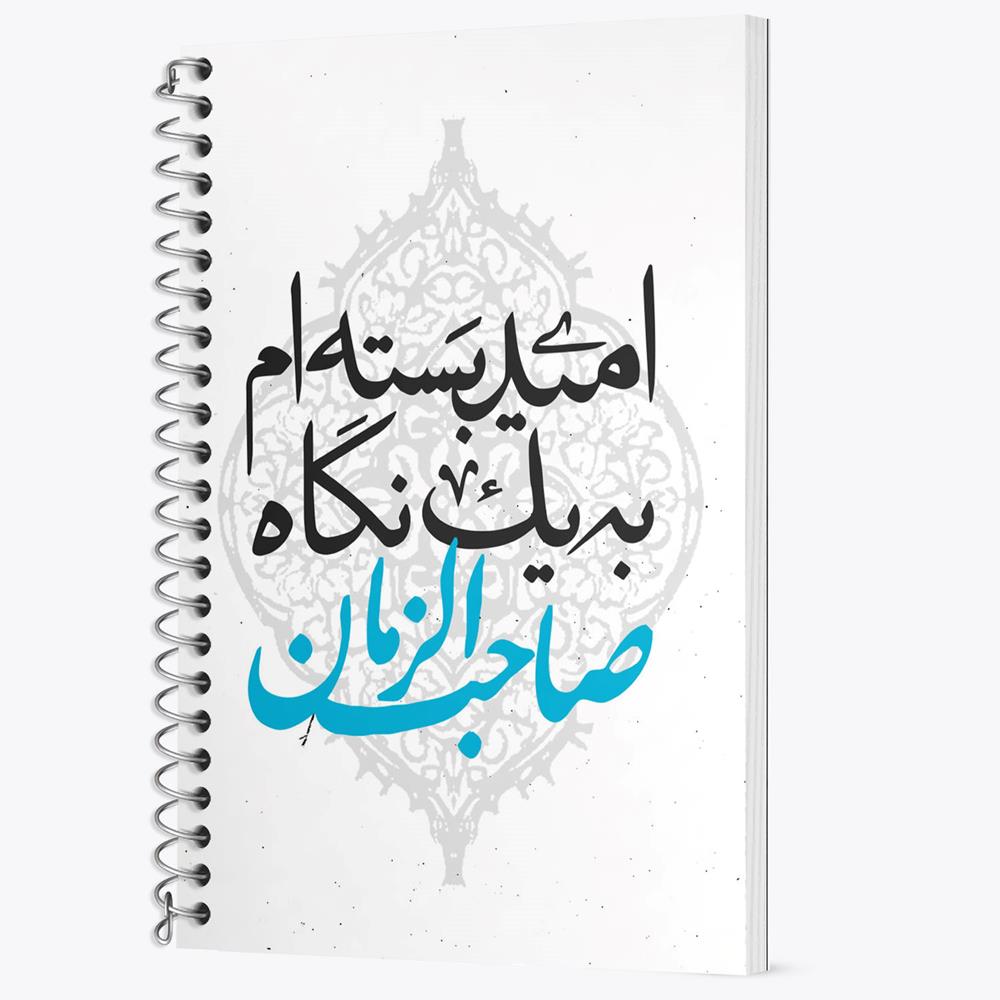 امید بسته ام
به یك نگاه
صاحب الزمان